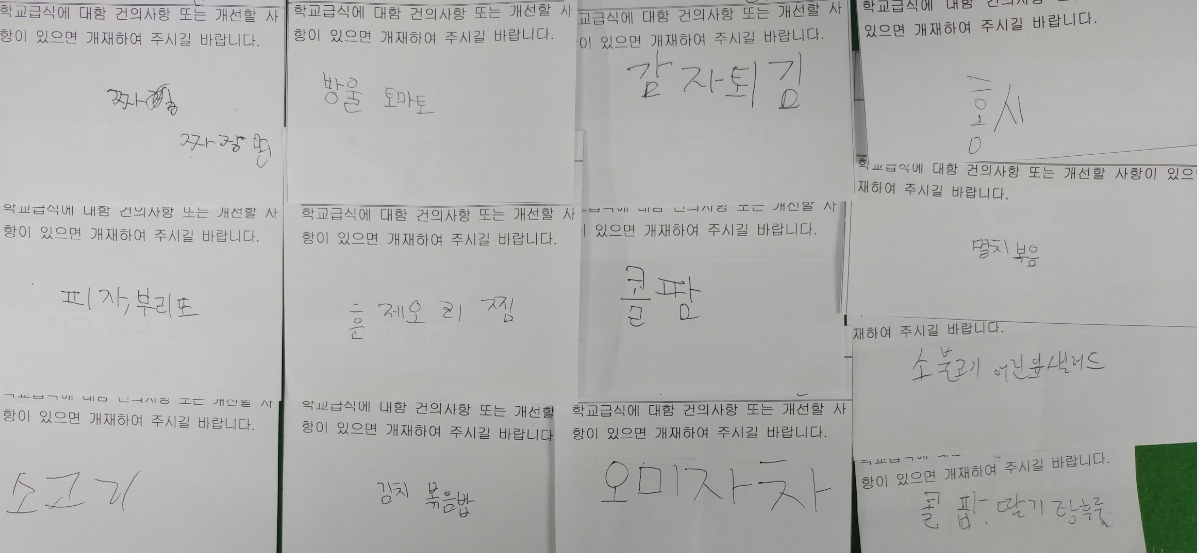 학교급식에 대함 건의사항 또는 개선할 사
항이 있으면 개재하여 주시길 바랍니다.
짜장면
학교급식에 대함 건의사항 또는 개선할 사
항이 있으면 개재하여 주시길 바랍니다.
방울 토마토
교급식에 대함 건의사항 또는 개선할 사
이 있으면 개재하여 주시길 바랍니다.
감자튀김
학교급식에 대함 건의사항 또는 개선할
있으면 개재하여 주시길 바랍니다.
홍시
학교급식에 대함 건의사항 또는 개선할 사항이 있으
재하여 주시길 바랍니다.
멸치볶음
학교급식에 대함 건의사항 또는 개선할 사
항이 있으면 개재하여 주시길 바랍니다.
피자,부리또
학교급식에 대함 건의사항 또는 개선할 사
항이 있으면 개재하여 주시길 바랍니다.
훈제오리 찜
대함 건의사항 또는 개선할 사
있으면 개재하여 주시길 바랍니다.
콜팝
재하여 주시길 바랍니다.
소불고기 어린잎샐러드
건의사항 또는 개선할 사
항이 있으면 개재하여 주시길 바랍니다.
소고기
학교급식에 대함 건의사항 또는 개선할
항이 있으면 개재하여 주시길 바랍니다
김치 볶음밥
학교급식에 대함 건의사항 또는 개선할 사
항이 있으면 개재하여 주시길 바랍니다.
오미자차
항이 있으면 개재하여 주시길 바랍니다.
콜팝, 딸기 탕후루